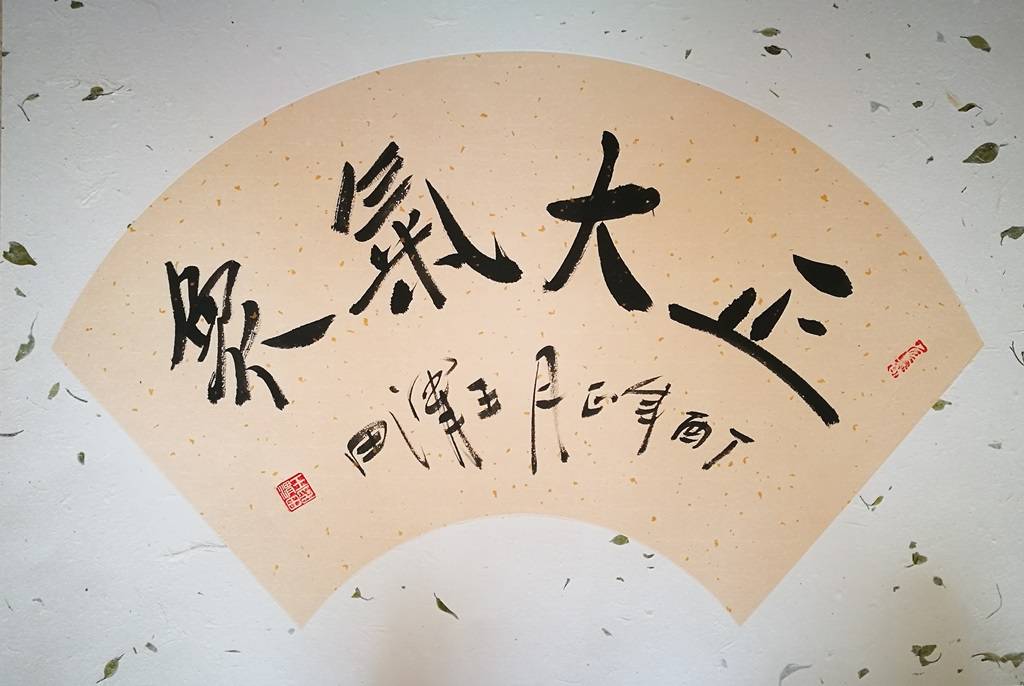 正大氣象
丁酉年正月王澤田